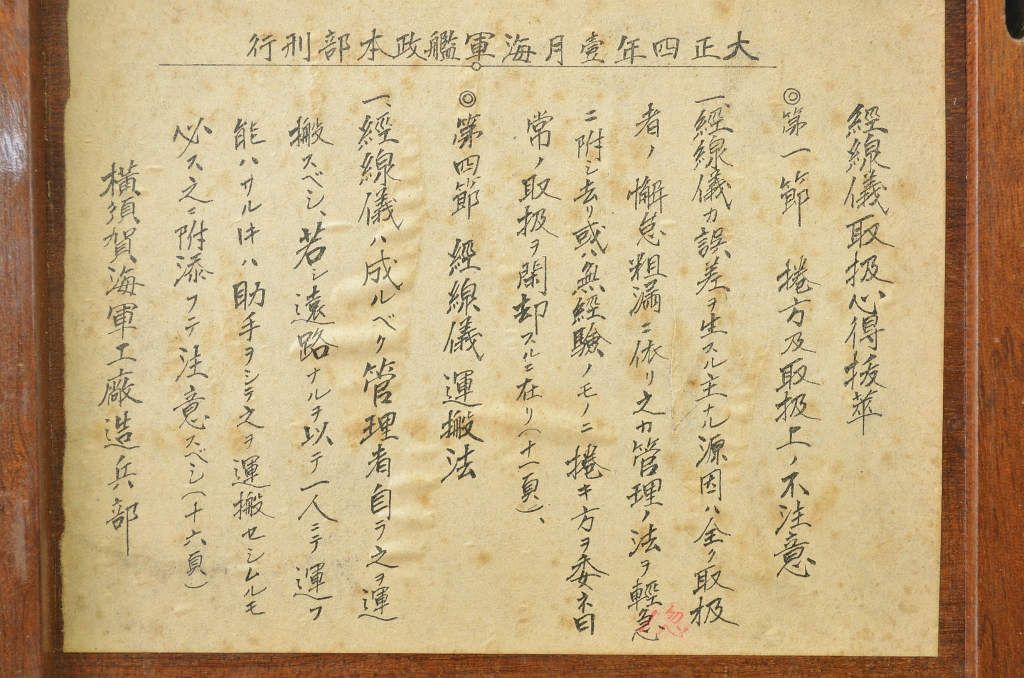 大正四年壹月海軍艦政本部刑行
經線儀取扱心得抜萃
◎第一節 捲方及取扱上ノ不注意
一、經線儀カ誤差ヲ生スル主ナル源因ハ全ク取扱
者ノ懈怠粗漏ニ依リ之カ管理ノ法ヲ輕急
忽
ニ附シ去リ或ハ無經驗ノモノニ捲キ方ヲ委ネ日
常ノ取扱ヲ閑却スルニ在リ(十一頁)、
◎第四節 經線儀運搬法
一、經線儀ハ成ルベク管理者自ラ之ヲ運
搬スベシ、若シ遠路ナルヲ以テ一人ニテ運フ
能ハサルトキハ助手ヲシテ之ヲ運搬セシムルモ
必ス之ニ附添フテ注意スベシ(十六頁)
横須賀海軍工廠造兵部